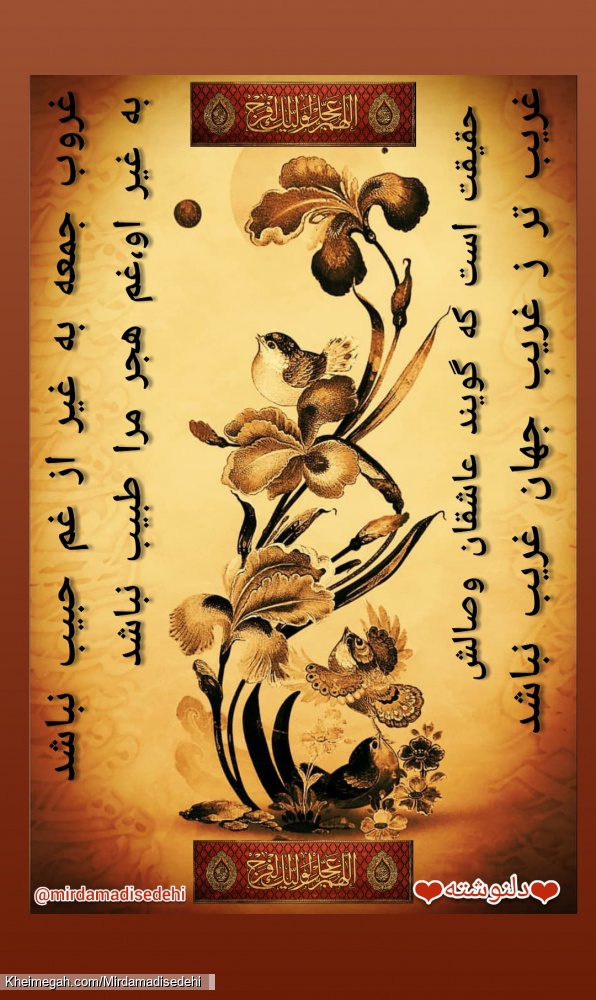 اللهم عجل لولیک الفرج
غریب تر ز غریب جهان غریب نباشد
حقیقت است که گویند عاشقان وصالش
به غیر او،غم هجر مرا طبیب نباشد
غروب جمعه به غیر از غم حبیب نباشد
اللهم عجل لولیک الفرج
@mirdamadisedehi
❤دلنوشته❤
Kheimegah.com/Mirdamadisedehi